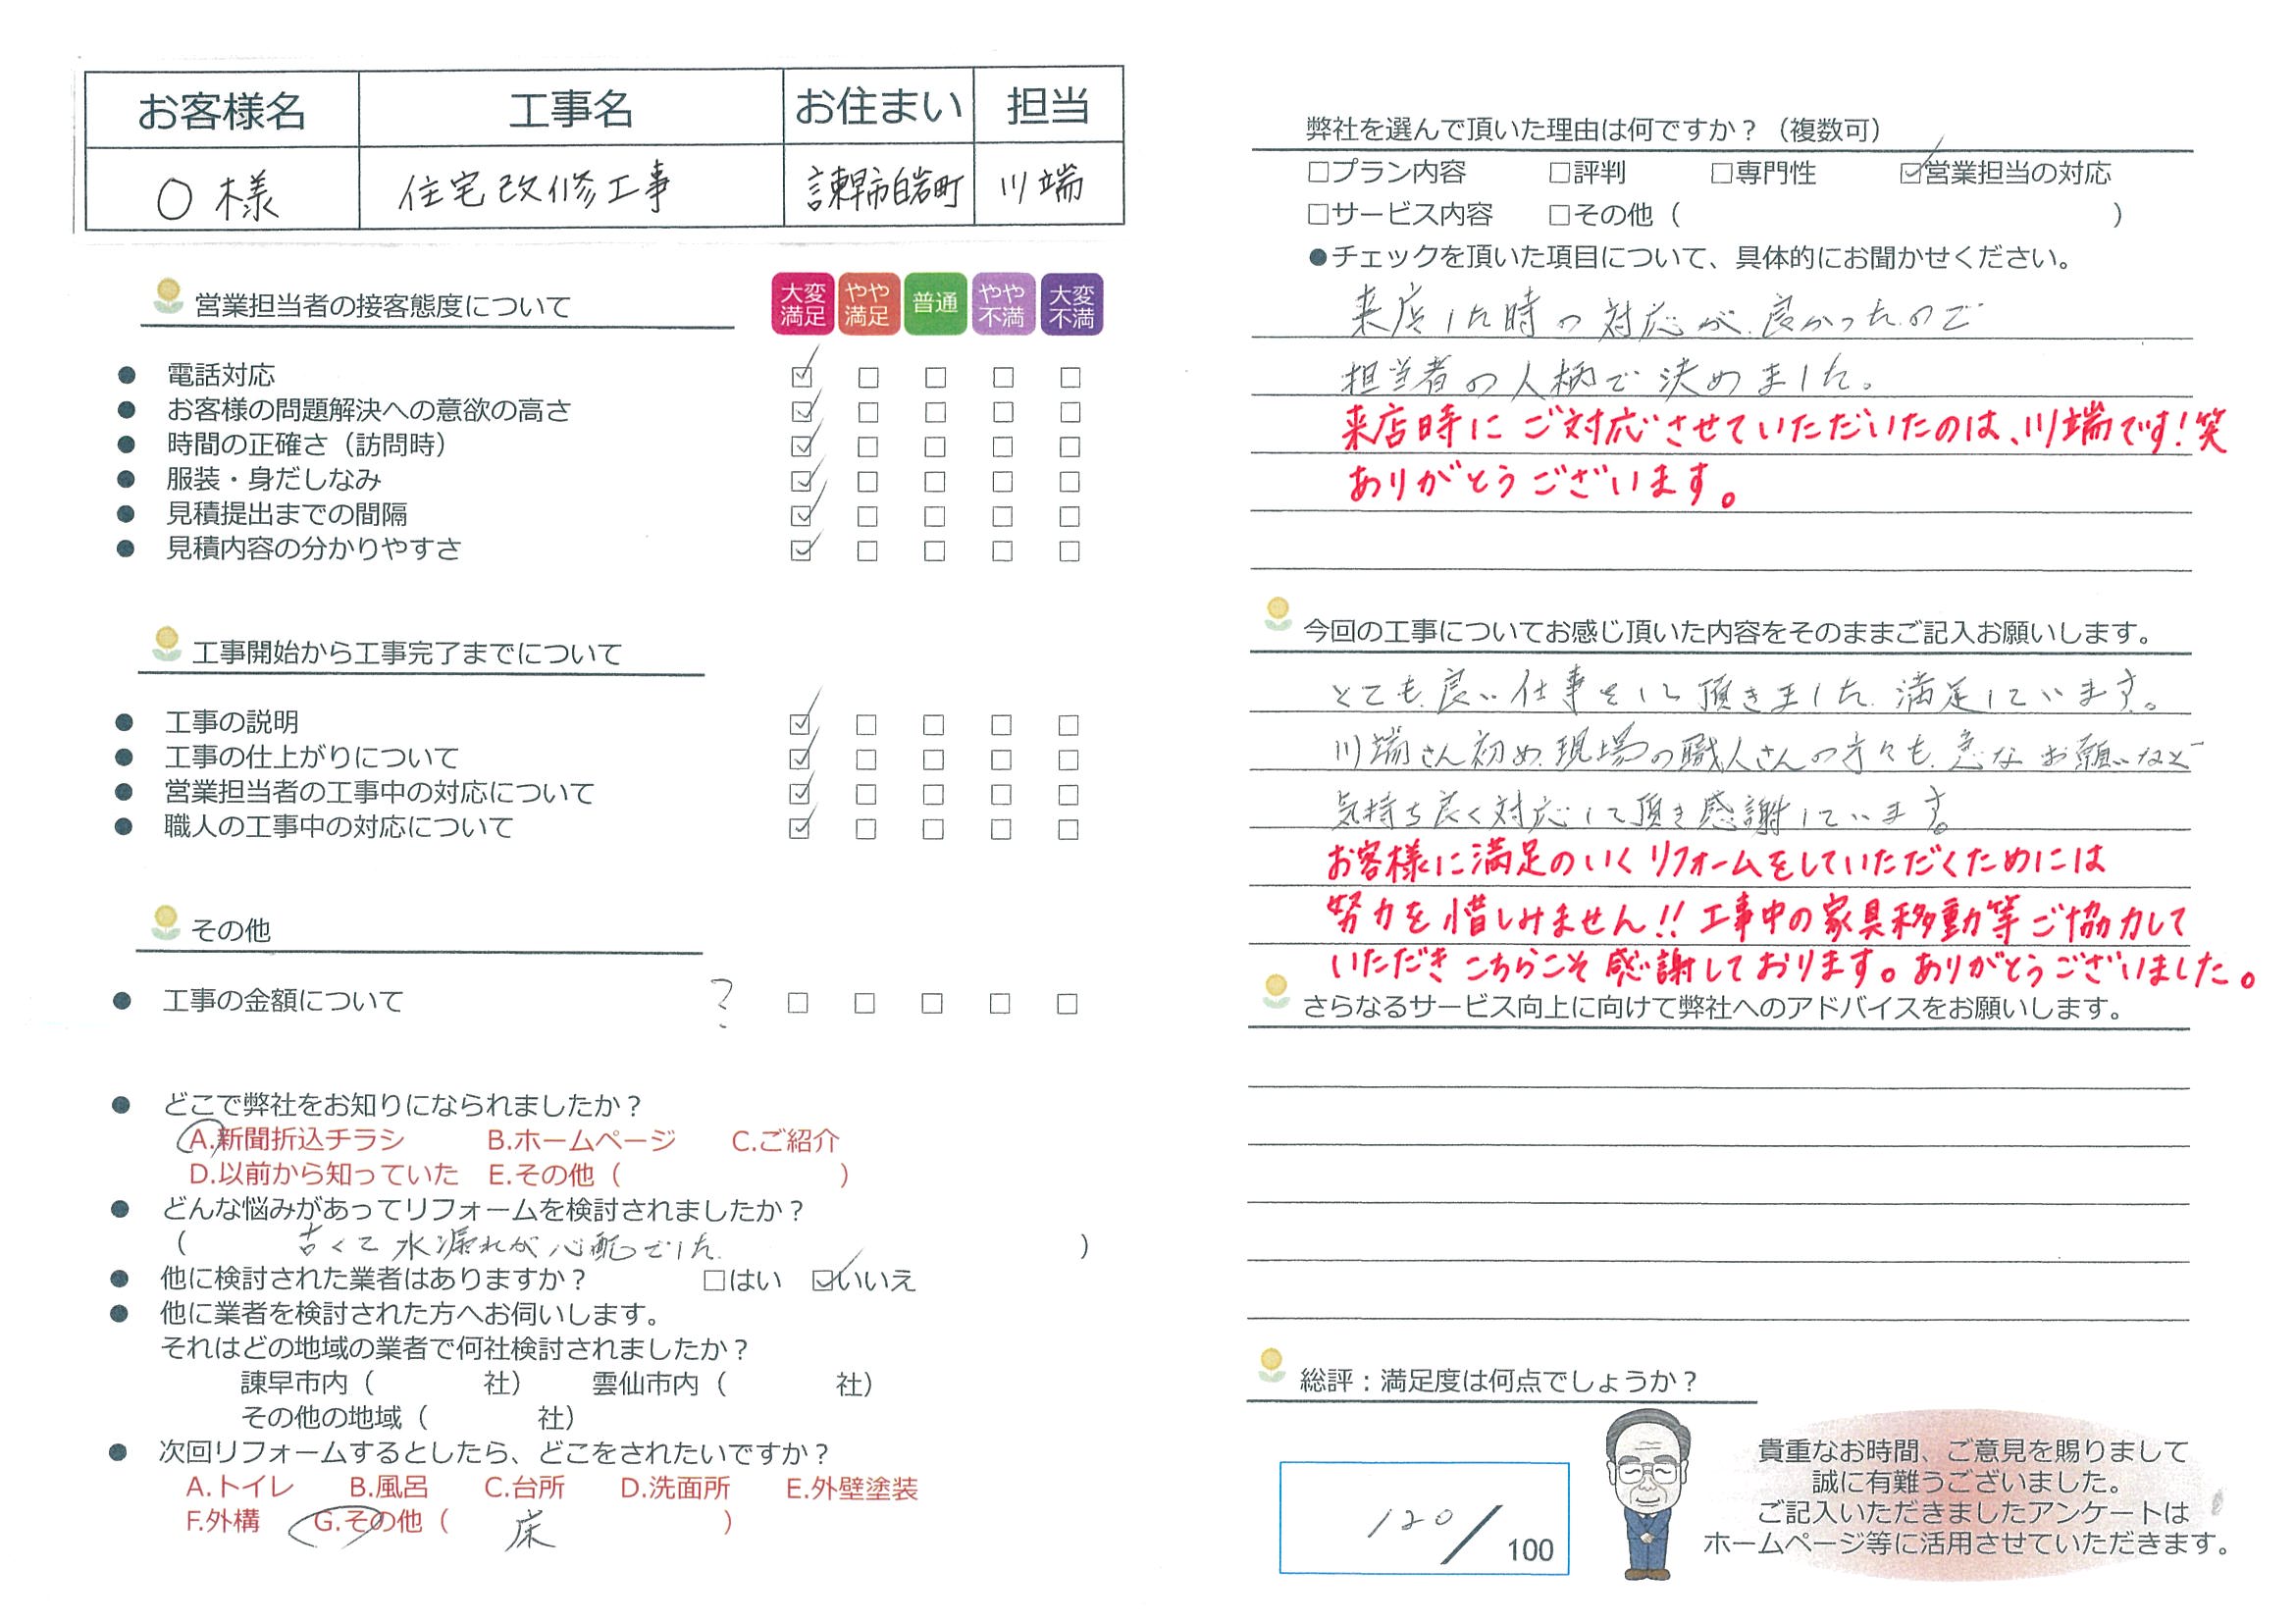 お客様名 工事名 お住まい 担当
〇様 住宅改修工事 諫早市白岩町 川端
営業担当者の接客態度について
大変満足 やや満足 普通 やや不満 大変不満
● 電話対応 ☑ □ □ □ □
● お客様の問題解決への意欲の高さ ☑ □ □ □ □
● 時間の正確さ（訪問時） ☑ □ □ □ □
● 服装・身だしなみ ☑ □ □ □ □
● 見積提出までの間隔 ☑ □ □ □ □
● 見積内容の分かりやすさ ☑ □ □ □ □
工事開始から工事完了までについて
● 工事の説明 ☑ □ □ □ □
● 工事の仕上がりについて ☑ □ □ □ □
● 営業担当者の工事中の対応について ☑ □ □ □ □
● 職人の工事中の対応について ☑ □ □ □ □
その他
● 工事の金額について ? □ □ □ □ □
● どこで弊社をお知りになられましたか？
A.新聞折込チラシ B.ホームページ C.ご紹介
D.以前から知っていた E.その他（ ）
● どんな悩みがあってリフォームを検討されましたか？
（ 古くて水漏れが心配でした ）
● 他に検討された業者はありますか？ □はい ☑いいえ
● 他に業者を検討された方へお伺いします。
それはどの地域の業者で何社検討されましたか？
諫早市内（ 社） 雲仙市内（ 社）
その他の地域（ 社）
● 次回リフォームするとしたら、どこをされたいですか？
A.トイレ B.風呂 C.台所 D.洗面所 E.外壁塗装
F.外構 G.その他（ 床 ）
弊社を選んで頂いた理由は何ですか？（複数可）
□プラン内容 □評判 □専門性 ☑営業担当の対応
□サービス内容 □その他（ ）
●チェックを頂いた項目について、具体的にお聞かせください。
来店した時の対応が良かったので
担当者の人柄で決めました。
来店時にご対応させていただいたのは、川端です！笑
ありがとうございます。
今回の工事についてお感じ頂いた内容をそのままご記入お願いします。
とても良い仕事をして頂きました 満足しています。
川端さん初め現場の職人さんの方々も急なお願いなど
気持ち良く対応して頂き感謝しています。
お客様に満足のいくリフォームをしていただくためには
努力を惜しみません!! 工事中の家具移動等ご協力して
いただきこちらこそ感謝しております。ありがとうございました。
さらなるサービス向上に向けて弊社へのアドバイスをお願いします。
総評：満足度は何点でしょうか？
120／100
貴重なお時間、ご意見を賜りまして
誠に有難うございました。
ご記入いただきましたアンケートは
ホームページ等に活用させていただきます。